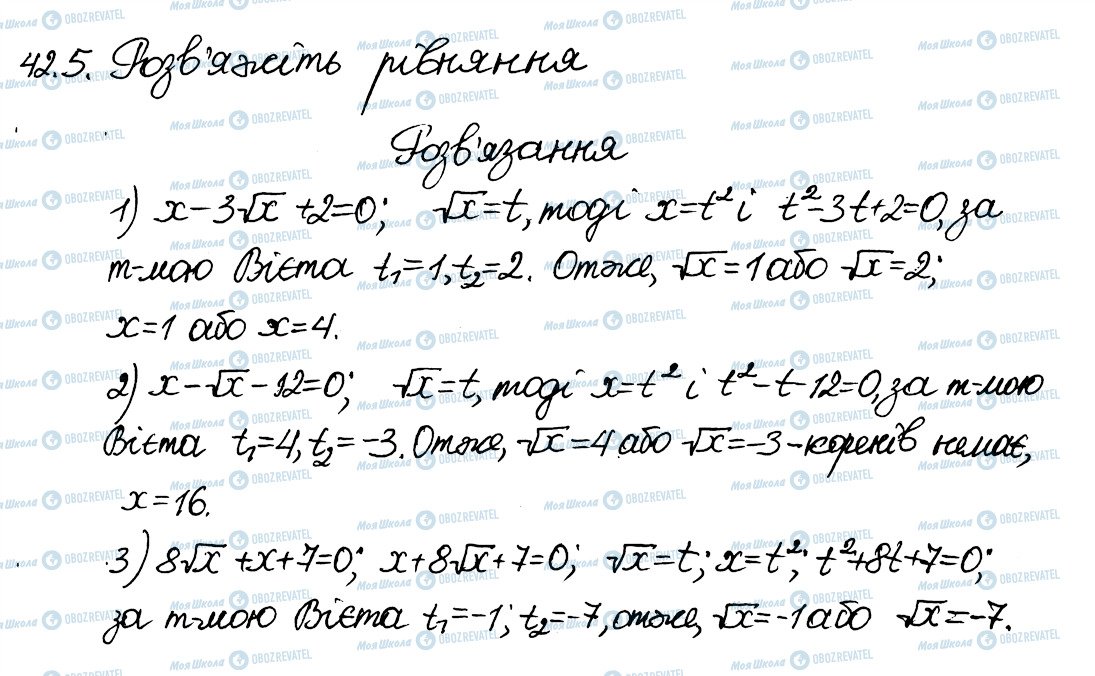 42.5. Розв'яжіть рівняння
Розв'язання
1) x-3√x+2=0; √x=t, тоді x=t² і t²-3t+2=0, за
т-мою Вієта t₁=1, t₂=2. Отже, √x=1 або √x=2;
x=1 або x=4.
2) x-√x-12=0; √x=t, тоді x=t² і t²-t-12=0, за т-мою
Вієта t₁=4, t₂=-3. Отже, √x=4 або √x=-3 - коренів немає,
x=16.
3) 8√x+x+7=0; x+8√x+7=0; √x=t; x=t²; t²+8t+7=0;
за т-мою Вієта t₁=-1; t₂=-7, отже, √x=-1 або √x=-7.
Моя Школа OBOZREVATEL